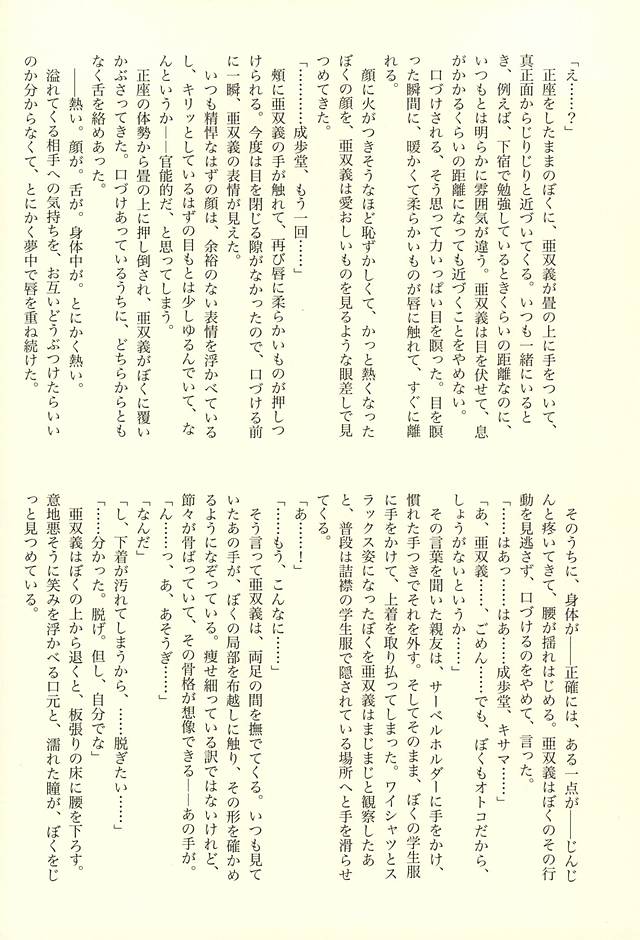 「え……？」
　正座をしたままのぼくに、亜双義が畳の上に手をついて、
真正面からじりじりと近づいてくる。いつも一緒にいると
き、例えば、下宿で勉強しているときくらいの距離なのに、
いつもとは明らかに雰囲気が違う。亜双義は目を伏せて、息
がかかるくらいの距離になっても近づくことをやめない。
　口づけされる、そう思って力いっぱい目を瞑った。目を瞑
った瞬間に、暖かくて柔らかいものが唇に触れて、すぐに離
れる。
　顔に火がつきそうなほど恥ずかしくて、かっと熱くなった
ぼくの顔を、亜双義は愛おしいものを見るような眼差しで見
つめてきた。
「…………成歩堂、もう一回……」
　頬に亜双義の手が触れて、再び唇に柔らかいものが押しつ
けられる。今度は目を閉じる隙がなかったので、口づける前
に一瞬、亜双義の表情が見えた。
　いつも精悍なはずの顔は、余裕のない表情を浮かべている
し、キリッとしているはずの目もとは少しゆるんでいて、な
んというか――官能的だ、と思ってしまう。
　正座の体勢から畳の上に押し倒され、亜双義がぼくに覆い
かぶさってきた。口づけあっているうちに、どちらからとも
なく舌を絡めあった。
　――熱い。顔が。舌が。身体中が。とにかく熱い。
　溢れてくる相手への気持ちを、お互いどうぶつけたらいい
のか分からなくて、とにかく夢中で唇を重ね続けた。
　そのうちに、身体が――正確には、ある一点が――じんじ
んと疼いてきて、腰が揺れはじめる。亜双義はぼくのその行
動を見逃さず、口づけるのをやめて、言った。
「……はあっ……はあ……成歩堂、キサマ……」
「あ、亜双義……、ごめん……でも、ぼくもオトコだから、
しょうがないというか……」
　その言葉を聞いた親友は、サーベルホルダーに手をかけ、
慣れた手つきでそれを外す。そしてそのまま、ぼくの学生服
に手をかけて、上着を取り払ってしまった。ワイシャツとス
ラックス姿になったぼくを亜双義はまじまじと観察したあ
と、普段は詰襟の学生服で隠されている場所へと手を滑らせ
てくる。
「あ……！」
「……もう、こんなに……」
　そう言って亜双義は、両足の間を撫でてくる。いつも見て
いたあの手が、ぼくの局部を布越しに触り、その形を確かめ
るようになぞっている。痩せ細っている訳ではないけれど、
節々が骨ばっていて、その骨格が想像できる――あの手が。
「ん……っ、あ、あそうぎ……」
「なんだ」
「し、下着が汚れてしまうから、……脱ぎたい……」
「……分かった。脱げ。但し、自分でな」
　亜双義はぼくの上から退くと、板張りの床に腰を下ろす。
意地悪そうに笑みを浮かべる口元と、濡れた瞳が、ぼくをじ
っと見つめている。